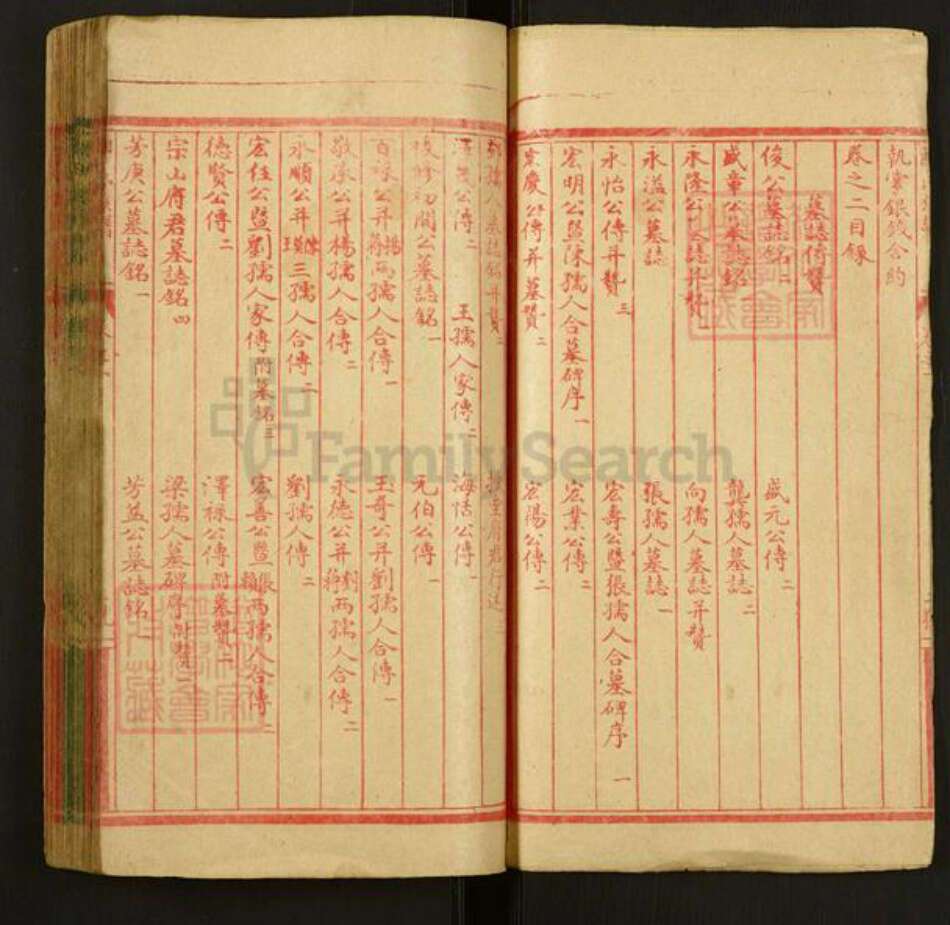 執業銀錢合約
卷之二目錄
墓誌傳贊
俊公墓誌銘 二
盛元公傳 二
盛章公墓誌銘
龔孺人墓誌 二
永隆公墓誌并贊 一
向孺人墓誌并贊
永溢公墓誌
張孺人墓誌 一
永怡公傳并贊 三
宏壽公暨張孺人合墓碑序 一
宏明公暨陳孺人合墓碑序 一
宏業公傳 二
慶公傳并墓贊 二
宏陽公傳 二
孺人墓誌銘并贊 二
府君行述
公傳 二
王孺人家傳 二
海恬公傳 一
修初閣公墓誌銘 一
元伯公傳 一
百祿公并楊蔣兩孺人合傳 一
玉奇公并劉孺人合傳 一
敬承公并楊孺人合傳 二
永德公并劉蔣兩孺人合傳 二
永順公并三孺人合傳 二
劉孺人傳 二
宏任公暨劉孺人家傳附墓銘 三
宏善公暨張兩孺人合傳 二
德賢公傳 二
澤祿公傳附墓贊 二
宗山府君墓誌銘 四
梁孺人墓碑序附贊
芳庚公墓誌銘 一
芳益公墓誌銘 一
FamilySearch